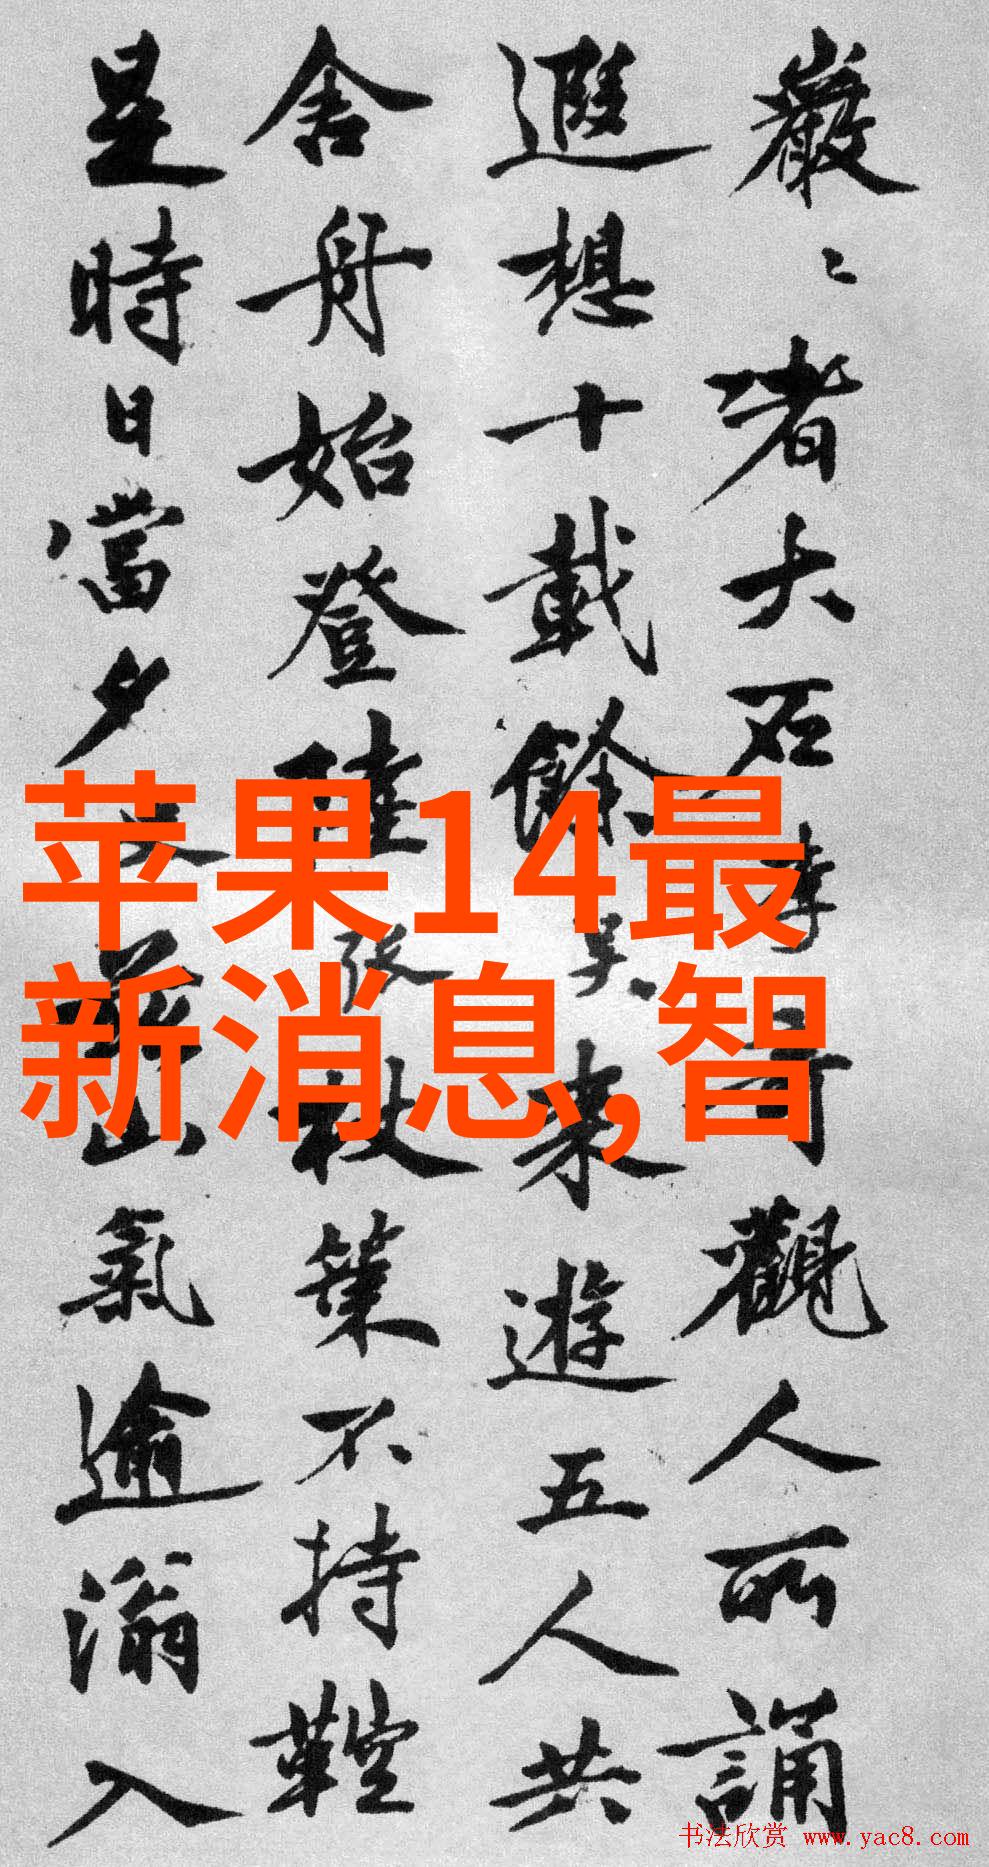 巖〻者大石李可觀人所誦
遐想十載餘吳来遊五人共
舍舟始登陸张杖策不持鞚
是時日當夕山氣逾滃入
苹果14最
新消息,智
书法欣赏 www.yac8.com